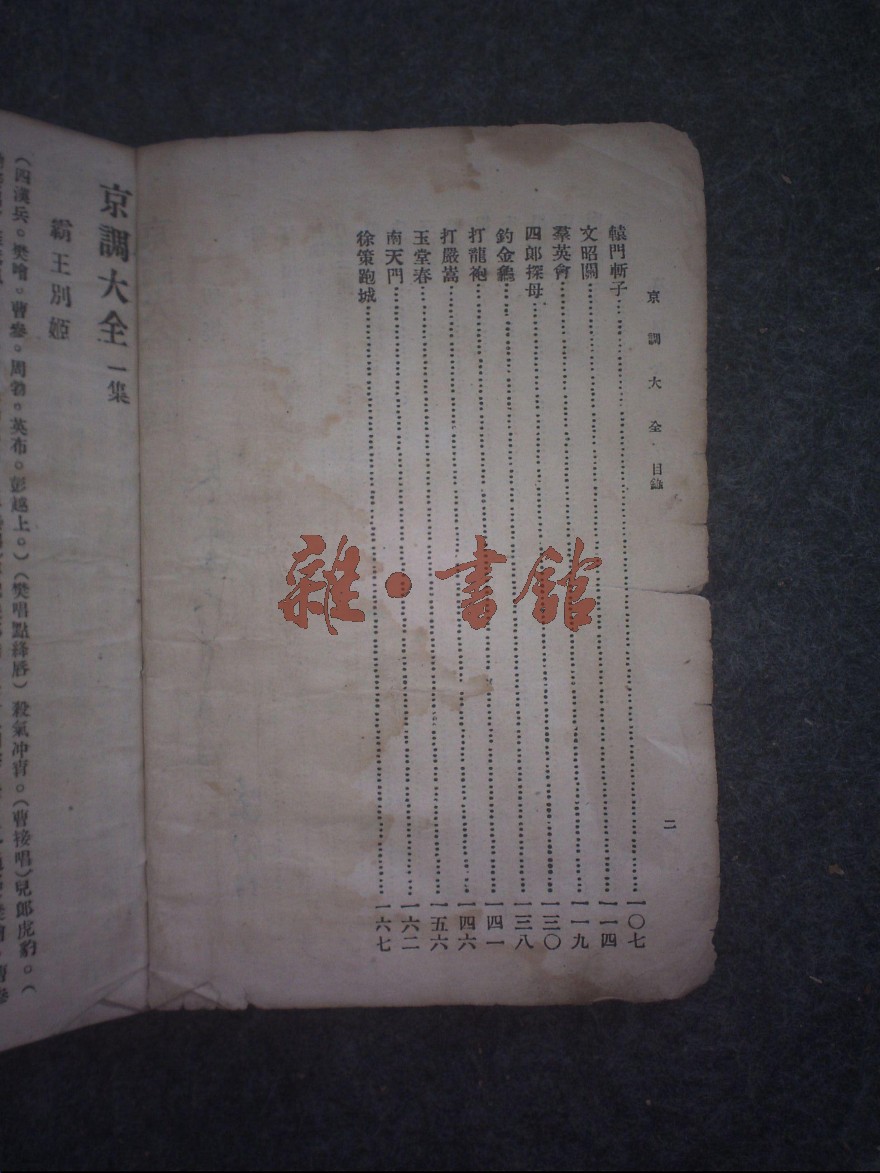 京調大全 目錄
二
轅門斬子 一〇七
文昭關 一一四
羣英會 一一九
四郎探母 一三〇
釣金龜 一三八
打龍袍 一四一
打嚴嵩 一四六
玉堂春 一五六
南天門 一六二
徐策跑城 一六七
雜·書館
京調大全 一集
霸王別姬
(四漢兵。樊噲。曹參。周勃。英布。彭越上。)(樊唱點絳唇)殺氣冲霄。(曹接唱)兒郎虎豹。(